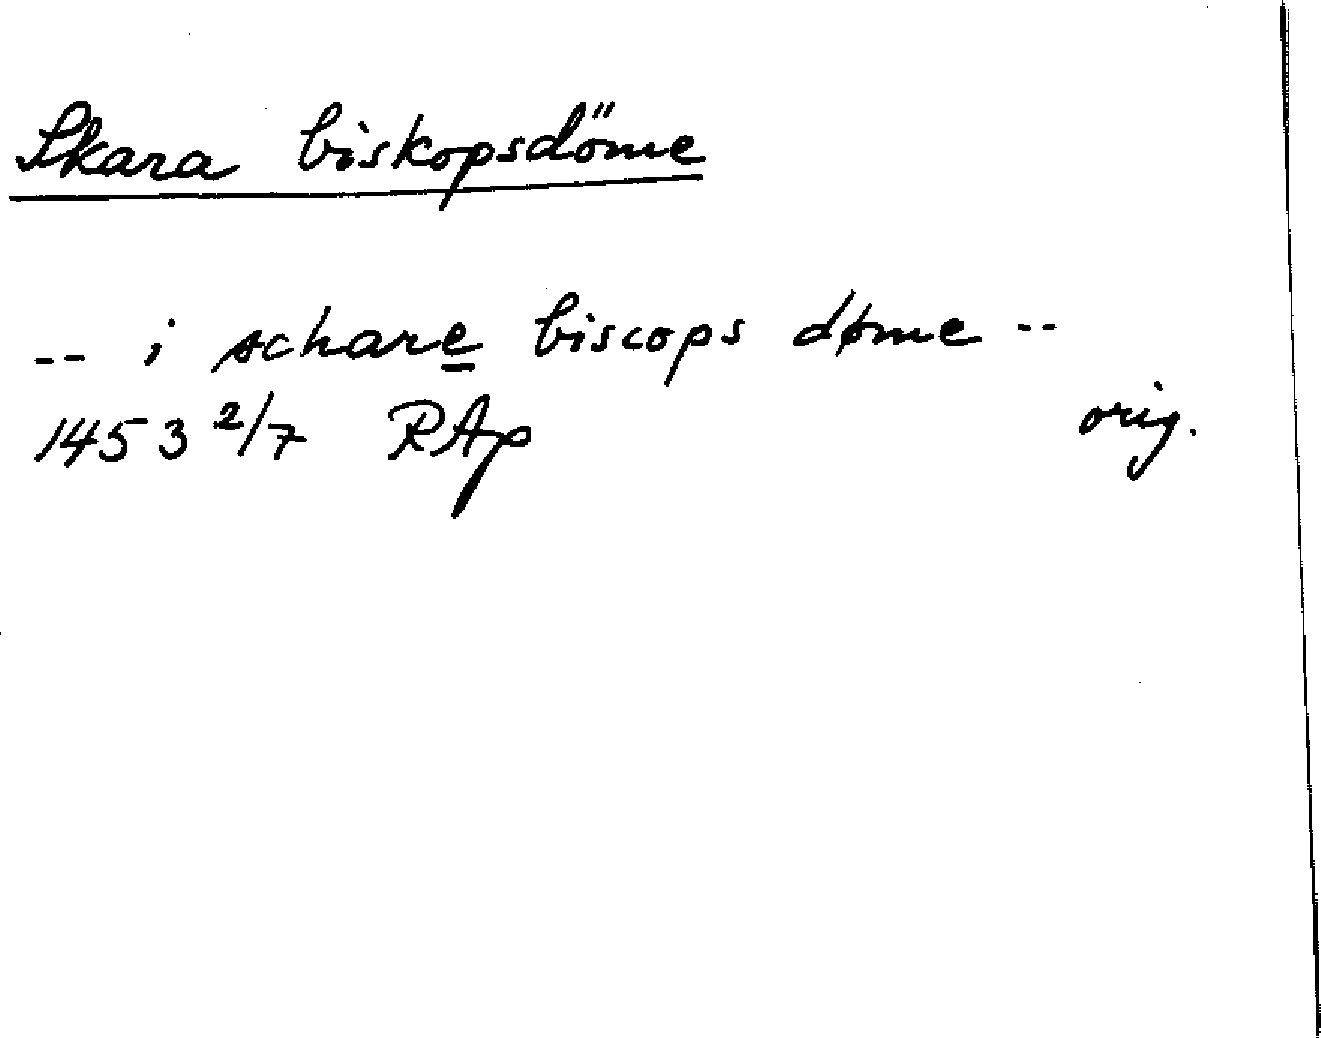 Skara biskopsdöme
-- i schare biscops døme --
1453 2/7 RAp orig.